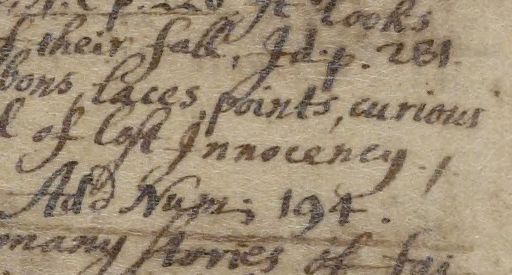 p. 228 It looks
f their fall, Id. p. 281.
bons, laces, points, curious
l of lost Innocency.
Ad Num; 194.
many stories of fai